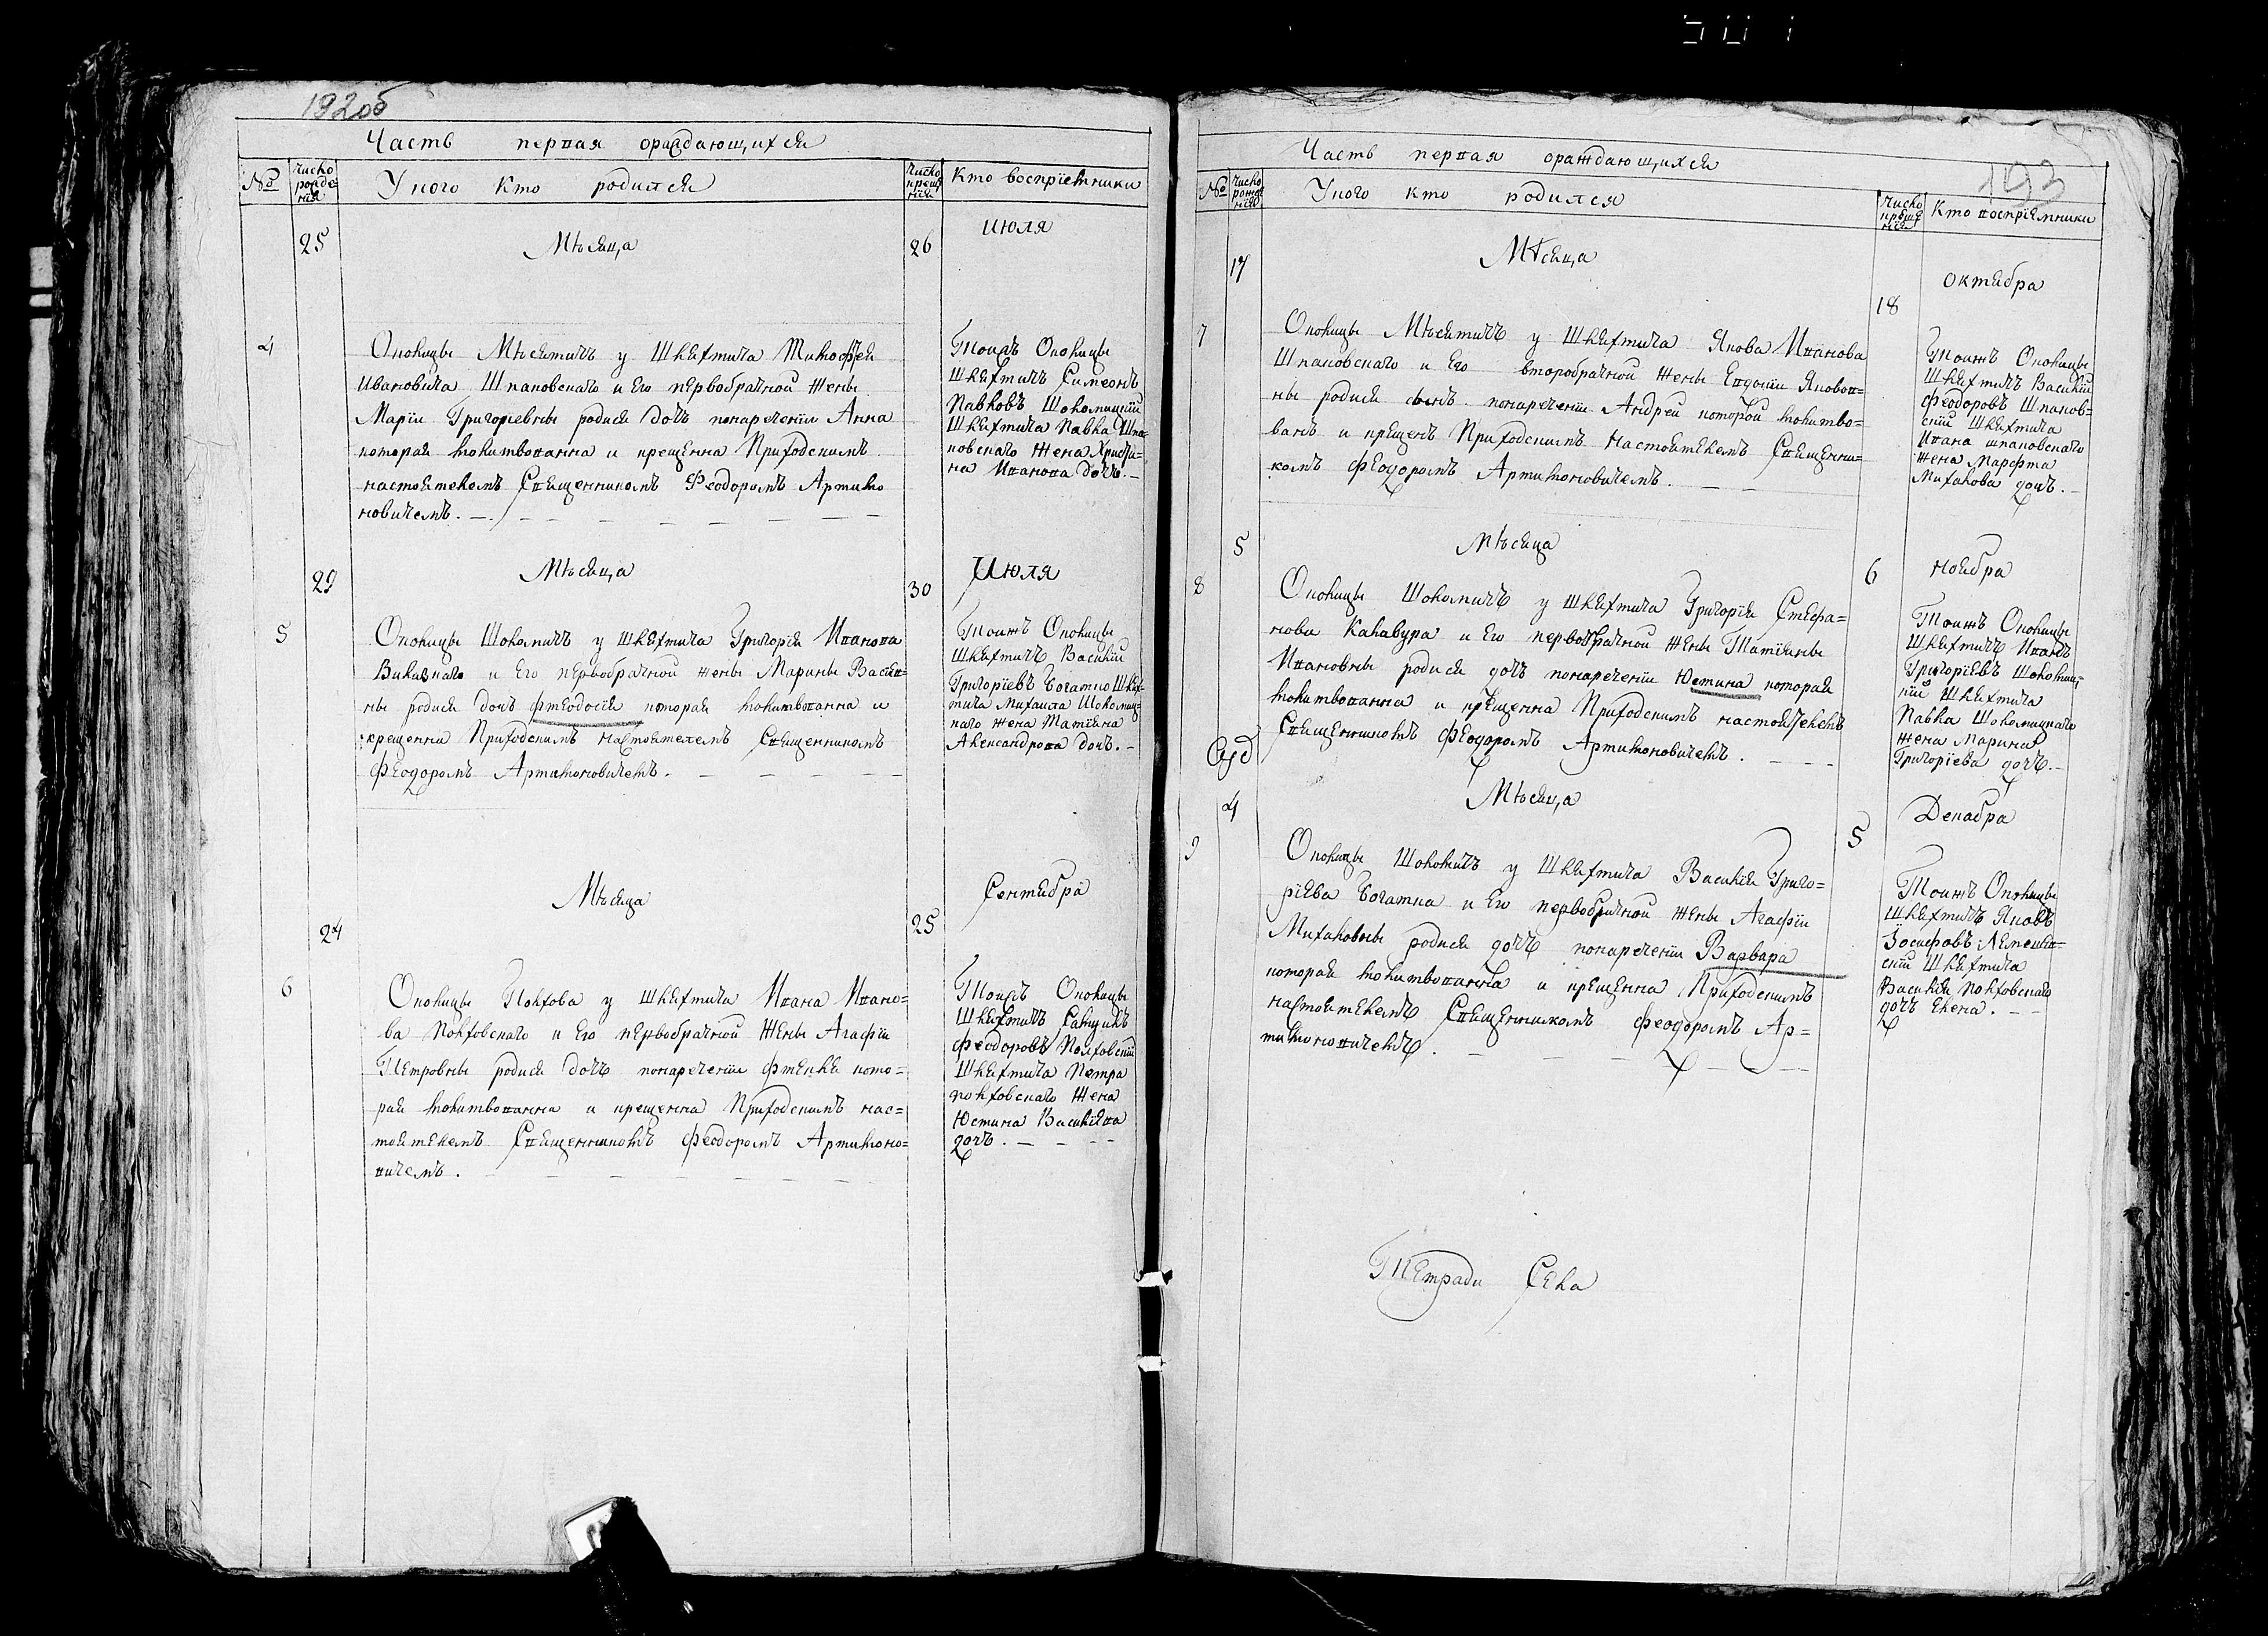 192об
Часть первая ораждающихся
№ Число рожде-ния У кого кто родился Число креще-ния Кто воспріемники
25 Мѣсяца 26 Июля
4
Околицы Мѣситичъ у Шляхтича Тимофея
Ивановича Шпановскаго и Его первобрачной жены
Маріи Григоріевны родися дочъ понаречении Анна
которая молитвованна и крещенна Приходскимъ
настоятелемъ Священникомъ Феодоромъ Артимо
новичемъ.
Тоижъ Околицы
Шляхтичъ Симеонъ
Павловъ Шоломицкій
Шляхтича Павла Шпа-
новскаго жена Христи-
на Иванова дочъ.
29 Мѣсяца 30 Июля
5
Околицы Шоломичъ у шляхтича Григорія Иванова
и Его первобрачной жены Марины Васил-
ны родися дочъ Фтеодосія которая молитвованна и
крещенна Приходскимъ настоятелемъ Священникомъ
Феодоромъ Артимоновичемъ.
Тоижъ Околицы
Шляхтичъ Василій
Григоріевъ Богатко Шлях-
тича Михаила Шоломиц-
каго жена Татіяна
Александрова дочъ.
24 Мѣсяца 25 Сентября
6
Околицы Полхова у шляхтича Ивана Ивано-
ва Полховскаго и Его первобрачной жены Агафіи
Петровны родися дочъ понаречении Фтекля кото-
рая молитвованна и крещенна Приходскимъ нас-
тоятелемъ Священникомъ Феодоромъ Артимоно-
вичемъ.
Тоижъ Околицы
Шляхтичъ
Феодоровъ Полховскій
Шляхтича Петра
полховскаго Жена
Юстина Василіева
дочъ.
193
Часть первая ораждающихся
№ Число рожде-нія У кого кто родился Число креще-нія Кто воспріемники
17 Мѣсяца 18 октября
7
Околицы Мѣситичъ у Шляхтича Якова Иванова
Шпановскаго и Его второбрачной жены Евдокіи Яковов-
ны родися сынъ понаречении Андрей которой молитво-
ванъ и крещенъ Приходскимъ Настоятелемъ Священни-
комъ Феодоромъ Артимоновичемъ.
Тоижъ Околицы
Шляхтичъ Василій
Феодоровъ Шпанов-
скій Шляхтича
Ивана шпановскаго
жена Марфта
Михалова дочъ.
5 Мѣсяца 6 ноября
8
Околицы Шоломичъ у шляхтича Григорія Стефа-
нова Калавура и Его первобрачной жены Татіяны
Ивановны родися дочъ понаречении Юстина которая
молитвованна и крещенна Приходскимъ настоятелемъ
Священникомъ Феодоромъ Артимоновичемъ.
Тоижъ Околицы
Шляхтичъ Иванъ
Григоріевъ Шоломиц-
кій Шляхтича
Павла Шоломицкаго
жена Марина
Григоріева дочъ.
4 Мѣсяца 5 Декабря
9
Околицы Шоломичъ у Шляхтича Василія Григо-
ріева Богатка и Его первобрачной жены Агафіи
Михаловны родися дочъ понаречении Варвара
которая молитвованна и крещенна Приходскимъ
настоятелемъ Священникомъ Феодоромъ Ар-
тимоновичемъ.
Тоижъ Околицы
Шляхтичъ Яковъ
скій Шляхтича
Василія Полховскаго
дочъ Елена.
Тетради Села